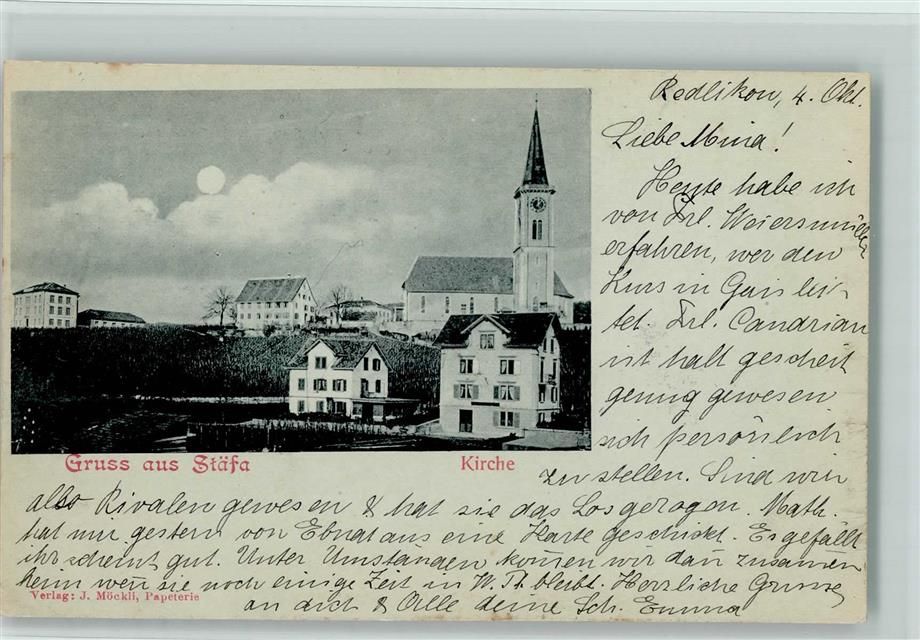 Redlikon, 4. Okt.
Liebe Mina!
Heute habe ich
von Frl. Weiersmüller
erfahren, wer den
Kurs in Gais lei-
tet. Frl. Candrian
ist halt gescheit
genug gewesen
sich persönlich
zu stellen. Sind wir
also Rivalen gewesen & hat sie das Los gezogen. Math.
hat mir gestern von Ebnat aus eine Karte geschickt. Es gefällt
ihr scheint gut. Unter Umständen kom̄en wir dan̄ zusamen
heim wen̄ sie noch einige Zeit in W. Th. bleibt. Herzliche Grüsse
an dich & Alle deine Sch. Emma
Gruss aus Stäfa
Kirche
Verlag: J. Möckli, Papeterie